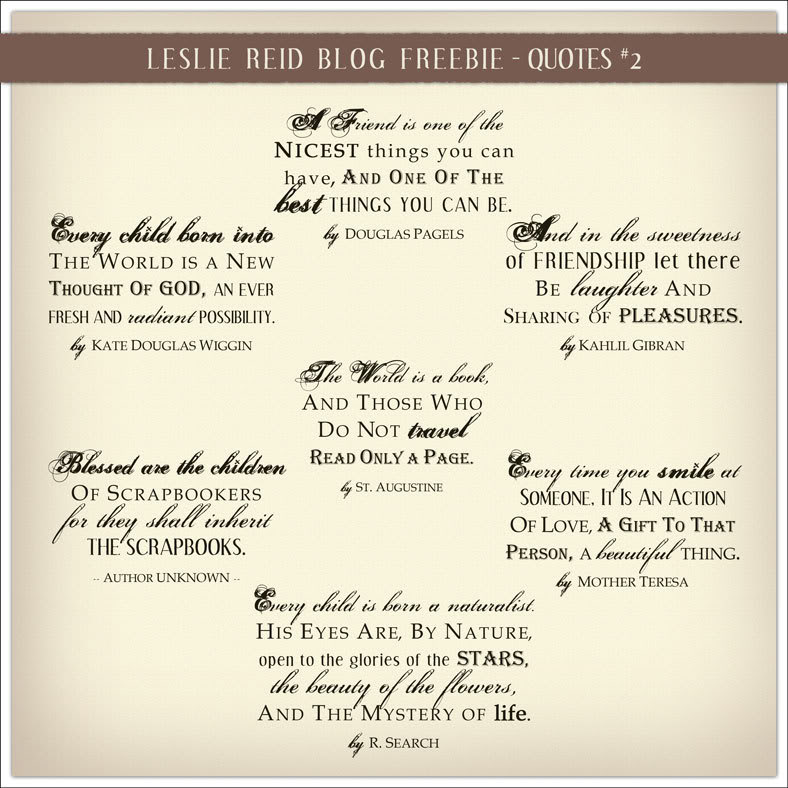 LESLIE REID BLOG FREEBIE - QUOTES #2
A Friend is one of the
NICEST things you can
have, AND ONE OF THE
best THINGS YOU CAN BE.
by DOUGLAS PAGELS
Every child born into
THE WORLD IS A NEW
THOUGHT OF GOD, AN EVER
FRESH AND radiant POSSIBILITY.
by KATE DOUGLAS WIGGIN
And in the sweetness
of FRIENDSHIP let there
BE laughter AND
SHARING OF PLEASURES.
by KAHLIL GIBRAN
The World is a book,
AND THOSE WHO
DO NOT travel
READ ONLY A PAGE.
by ST. AUGUSTINE
Blessed are the children
OF SCRAPBOOKERS
for they shall inherit
THE SCRAPBOOKS.
-- AUTHOR UNKNOWN --
Every time you smile at
SOMEONE, IT IS AN ACTION
OF LOVE, A GIFT TO THAT
PERSON, A beautiful THING.
by MOTHER TERESA
Every child is born a naturalist.
HIS EYES ARE, BY NATURE,
open to the glories of the STARS,
the beauty of the flowers,
AND THE MYSTERY OF life.
by R. SEARCH